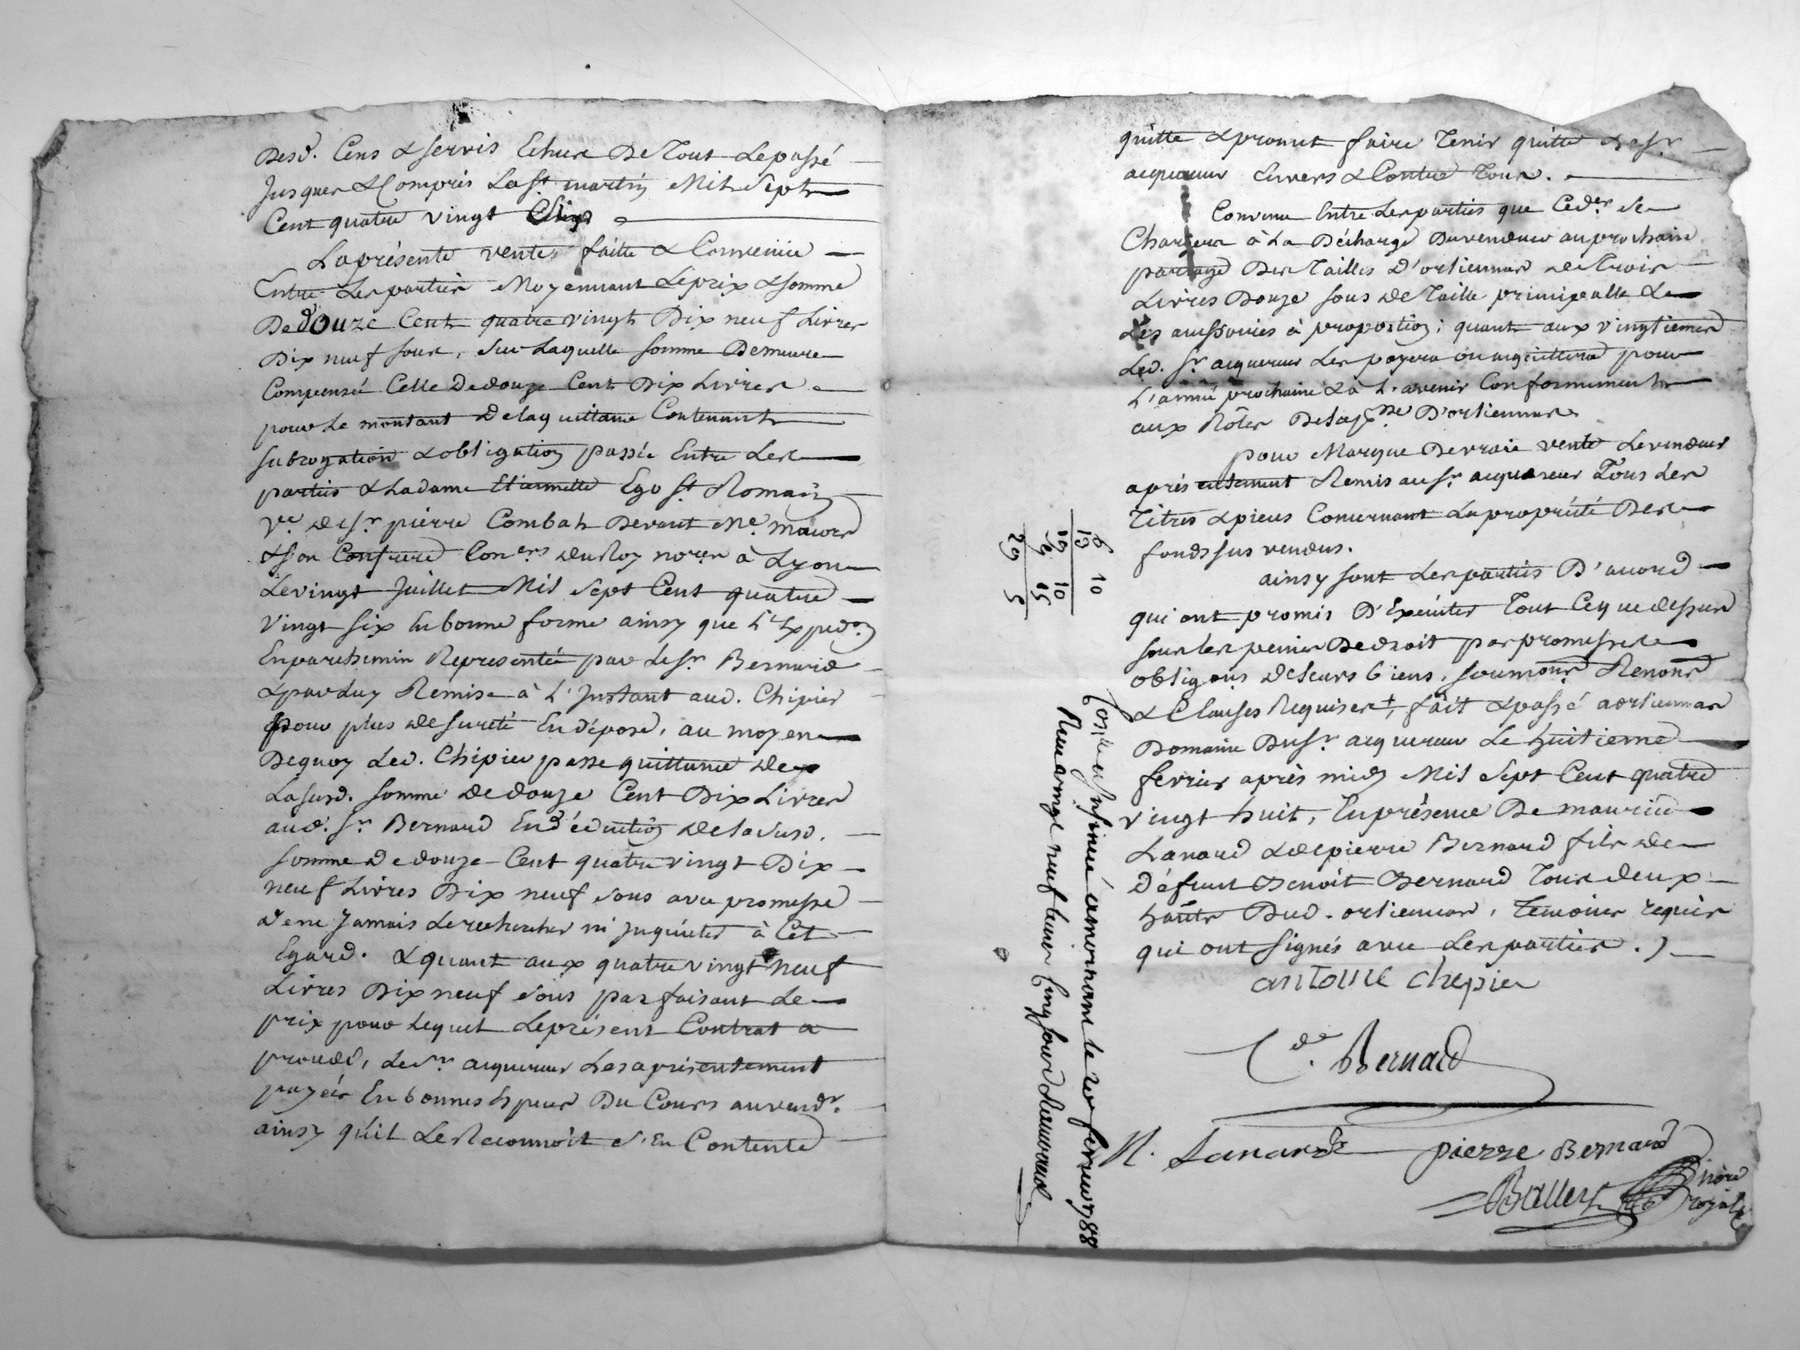 Desd. Cens & servis Echus De Tout Le passé
Jusques & Compris La St martin Mil Sept
Cent quatre vingt
La présente vente faitte & Convenüe
Entre Les parties Moyennant Le prix & somme
De douze Cent quatre vingt Dix neuf Livres
Dix neuf sous, sur Laquelle somme Demeure
Compensé Celle De douze Cent Dix Livres
pour Le montant de la quittance Contenant
subrogation & obligation passée Entre Les
parties & Ladame Etiennette Ego St Romain
Ve de Sr pierre Combat Devant Me
& son Confrere Con.ers du Roy no.res à Lyon
Le vingt Juillet Mil Sept Cent quatre
Vingt six En bonne forme ainsy que L'Exped.on
En parchemin Representée par le Sr Bernard
& par Luy Remise à L'Instant aud. Chipier
pour plus de sureté En dépose, au moyen
De quoy Led. Chipier passe quittance de
La susd. somme de douze Cent Dix Livres
aud. Sr Bernard En déduction de la susd.
somme de douze Cent quatre vingt Dix
neuf Livres Dix neuf sous avec promesse
de ne Jamais Le rechercher ni inquieter à Cet
Egard. & quant aux quatre vingt neuf
Livres Dix neuf sous parfaisant Le
prix pour Lequel Le présent Contrat a
procédé, Le Sr acquereur Les a présentement
payées En bonnes Especes Du Cours au vendr.
ainsy qu'il Le Reconnoit s'En Contente
quitte & promet faire Tenir quitte Led Sr
acquereur Envers & Contre Tous.
Convenu Entre Les parties que Ced.er se
Chargera à La Décharge Du vendeur au prochain
partage Des Tailles D'ortiennas de Trois
Livres Douze sous de Taille principalle &
Les accessoires à proportion; quant aux vingtiemes
Led. Sr acquereur Les payera ou acquittera pour
L'année prochaine & à L'avenir Conformement
aux Rôles De la p.sse D'ortiennas
pour Marque De vraie vente Le vendeur
a présentement Remis au Sr acquereur Tous Les
Titres & pieces Concernant La propriété Des
fonds sus vendus.
ainsy sont Les parties D'accord
qui ont promis D'Exécuter Tout Ce que dessus
sous Les peines De droit par promesses
obligons de Leurs biens, soumons Renons
& Clauses Requises, fait & passé a ortiennas
Domaine Du Sr acquereur Le huitieme
fevrier après midy Mil Sept Cent quatre
vingt huit, En présence De maurice
Lanard & de pierre Bernard fils de
Défunt Benoit Bernard Tous deux
habts Dud. ortiennas, Temoins requis
qui ont signés avec Les parties.
antoine chepier
Bernard
Lanard pierre Bernard
Ballet nore
royal
6 10
13 10
19 15
29 5
Coll.é Insinué à noirnant le 20 fevrier 1788
Reçu vingt neuf livres cinq sous